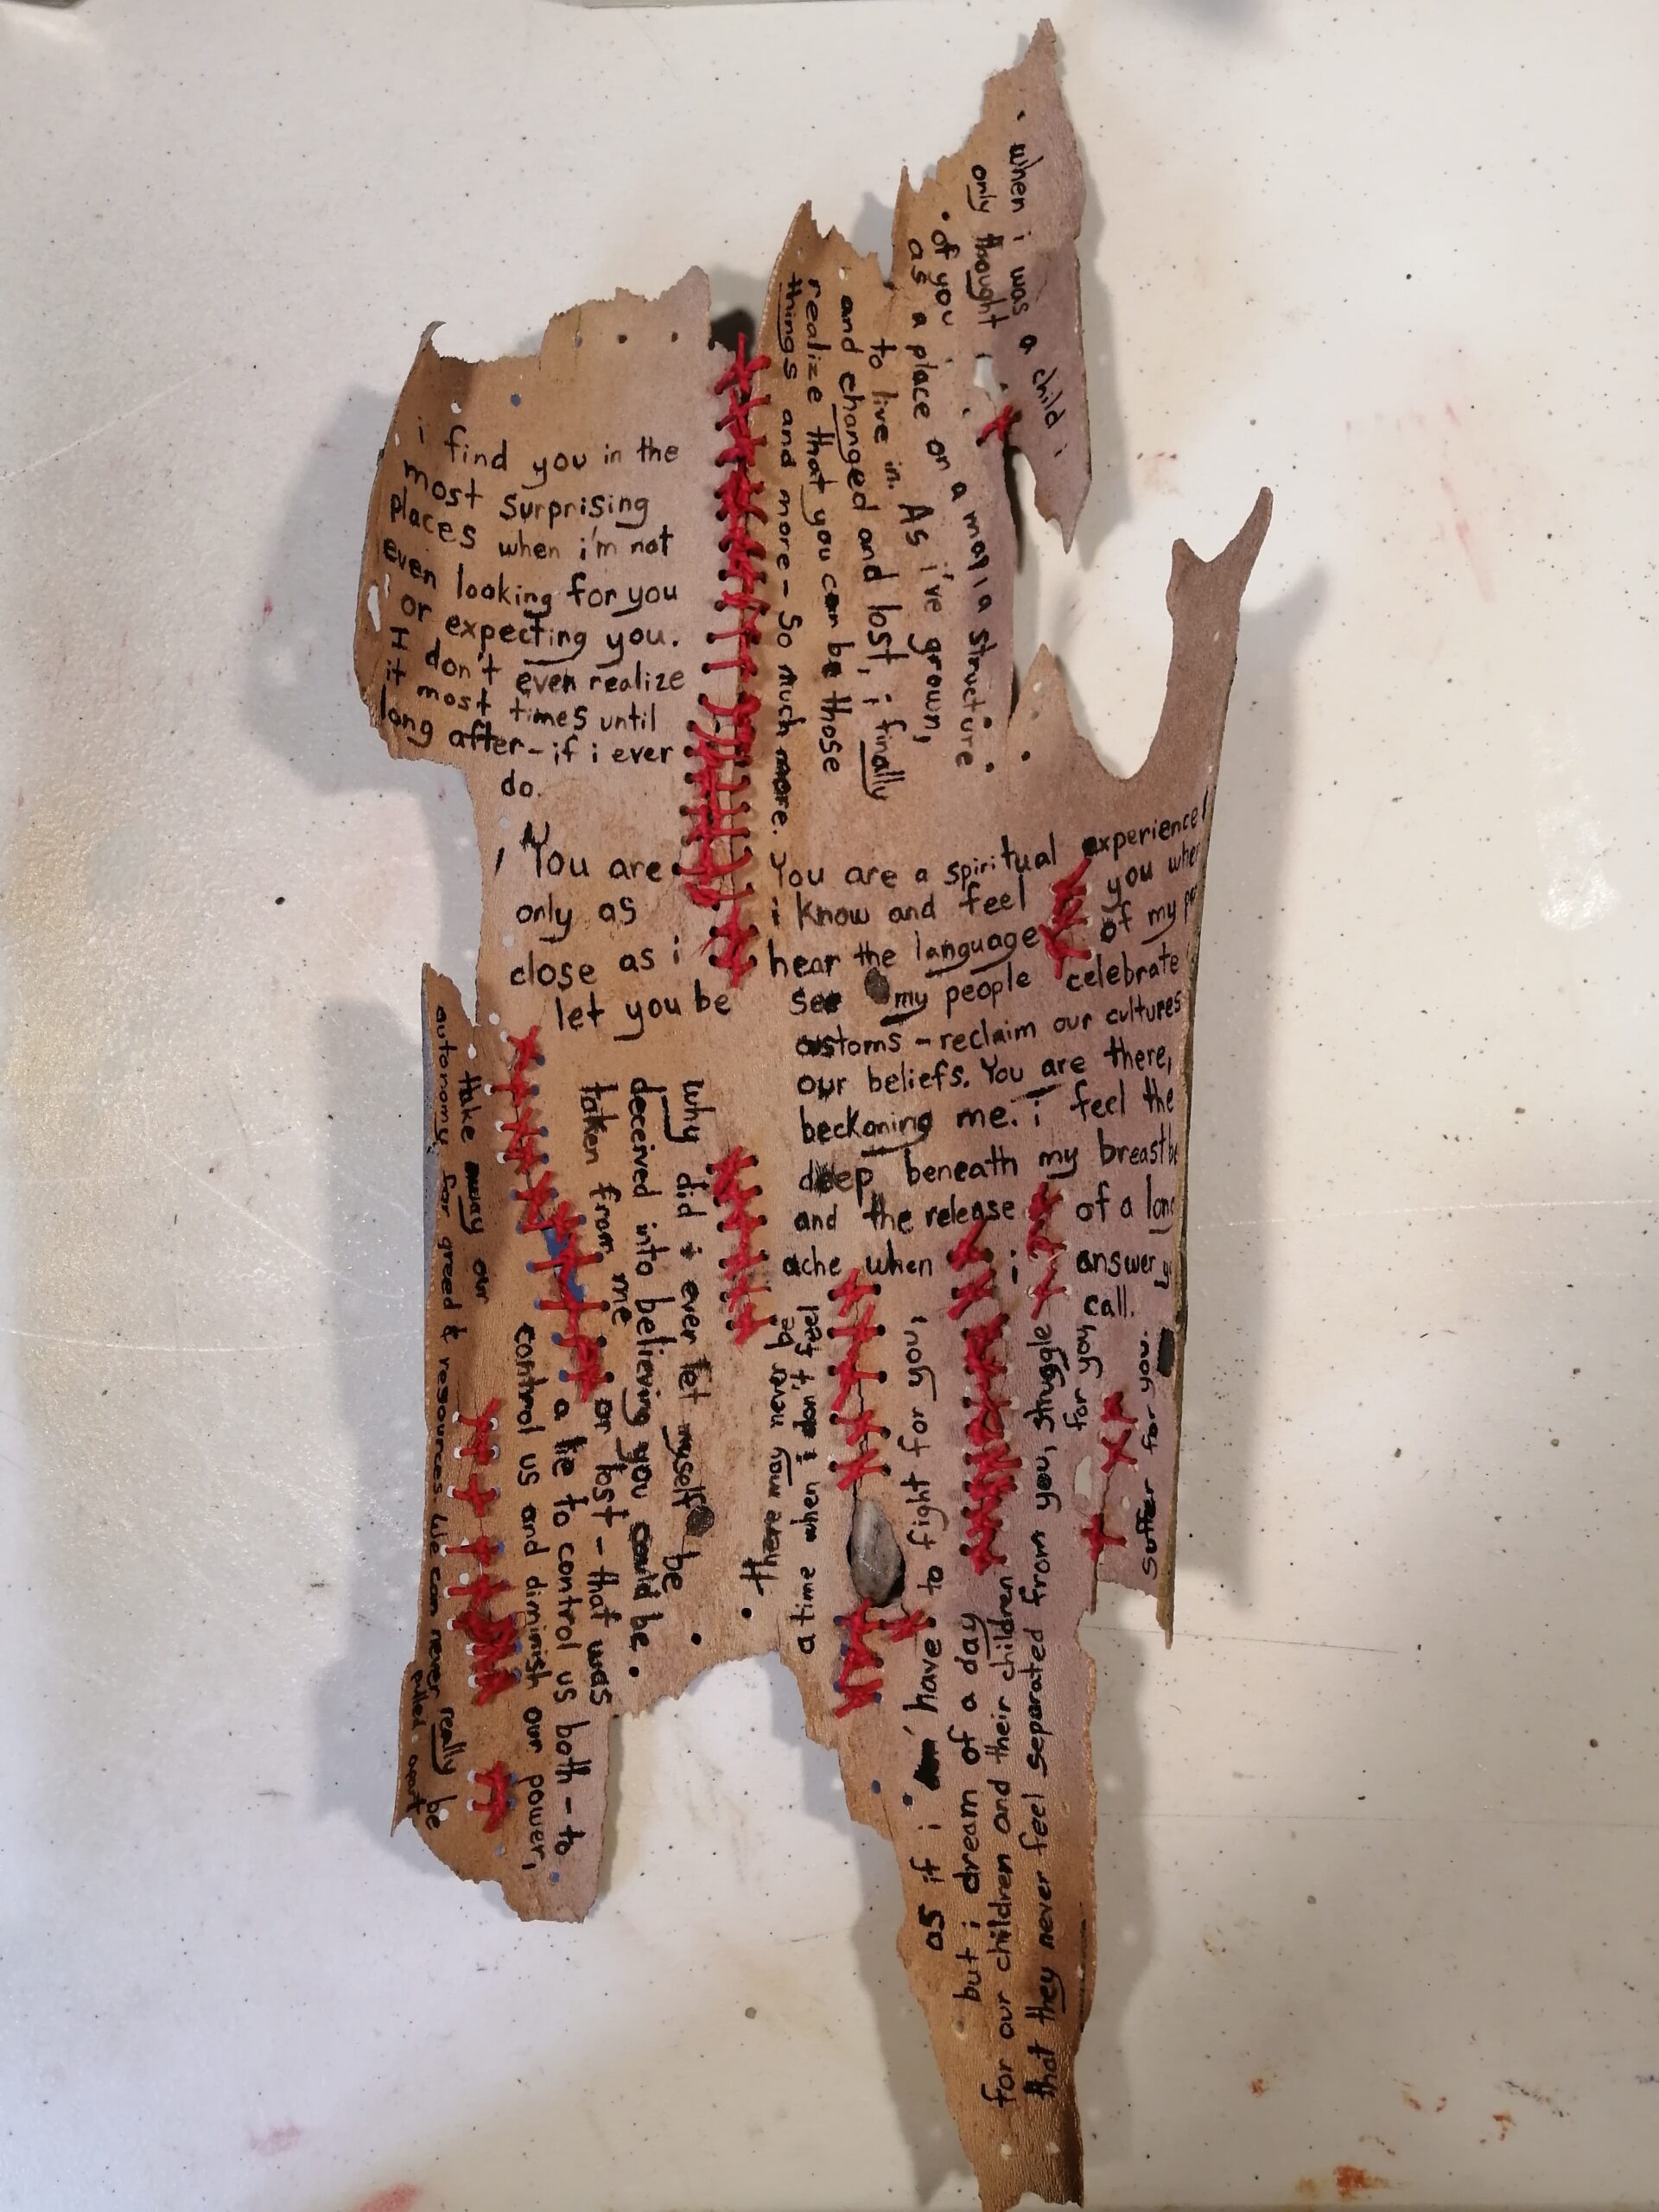 when i was a child i
only thought
of you
as a place on a map, a structure
to live in. As i've grown,
and changed and lost, i finally
realize that you can be those
things and more - So much more.
You are a spiritual experience!
i know and feel you when
hear the language of my
see my people celebrate
customs - reclaim our cultures
our beliefs. You are there,
beckoning me. i feel the
deep beneath my breast
and the release of a long
ache when i answer
call.
i find you in the
most surprising
places when i'm not
even looking for you
or expecting you.
I don't even realize
it most times until
long after - if i ever
do.
You are
only as
close as i
let you be
Why did i ever let myself be
deceived into believing you could be
taken from me or lost - that was
a lie to control us both - to
control us and diminish our power,
take away our
autonomy for greed & resources. We can never really be
pulled apart
there may never be
a time when i don't feel
as if i have to fight for you,
but i dream of a day
for our children and their children
that they never feel separated from you, struggle
for you,
suffer for you.